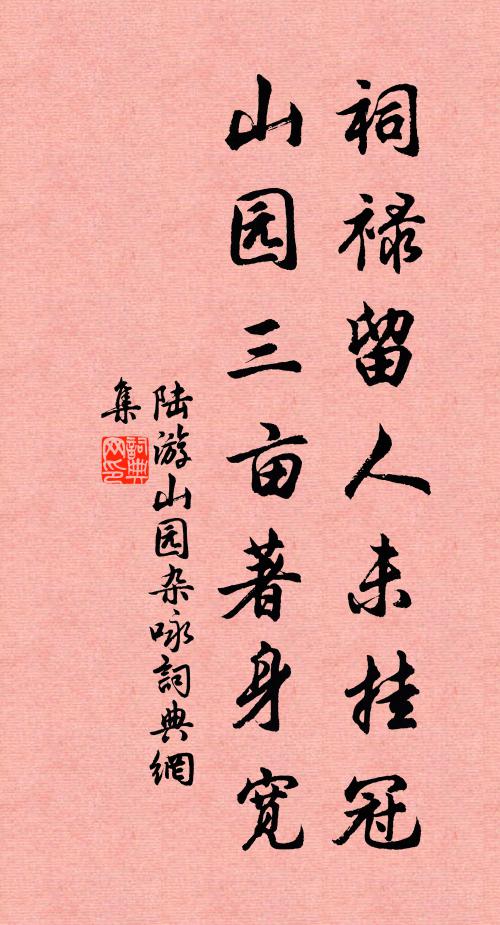 祠禄留人未挂冠
山园三亩著身宽
陆游山园杂咏詞典網
集
詞典网印